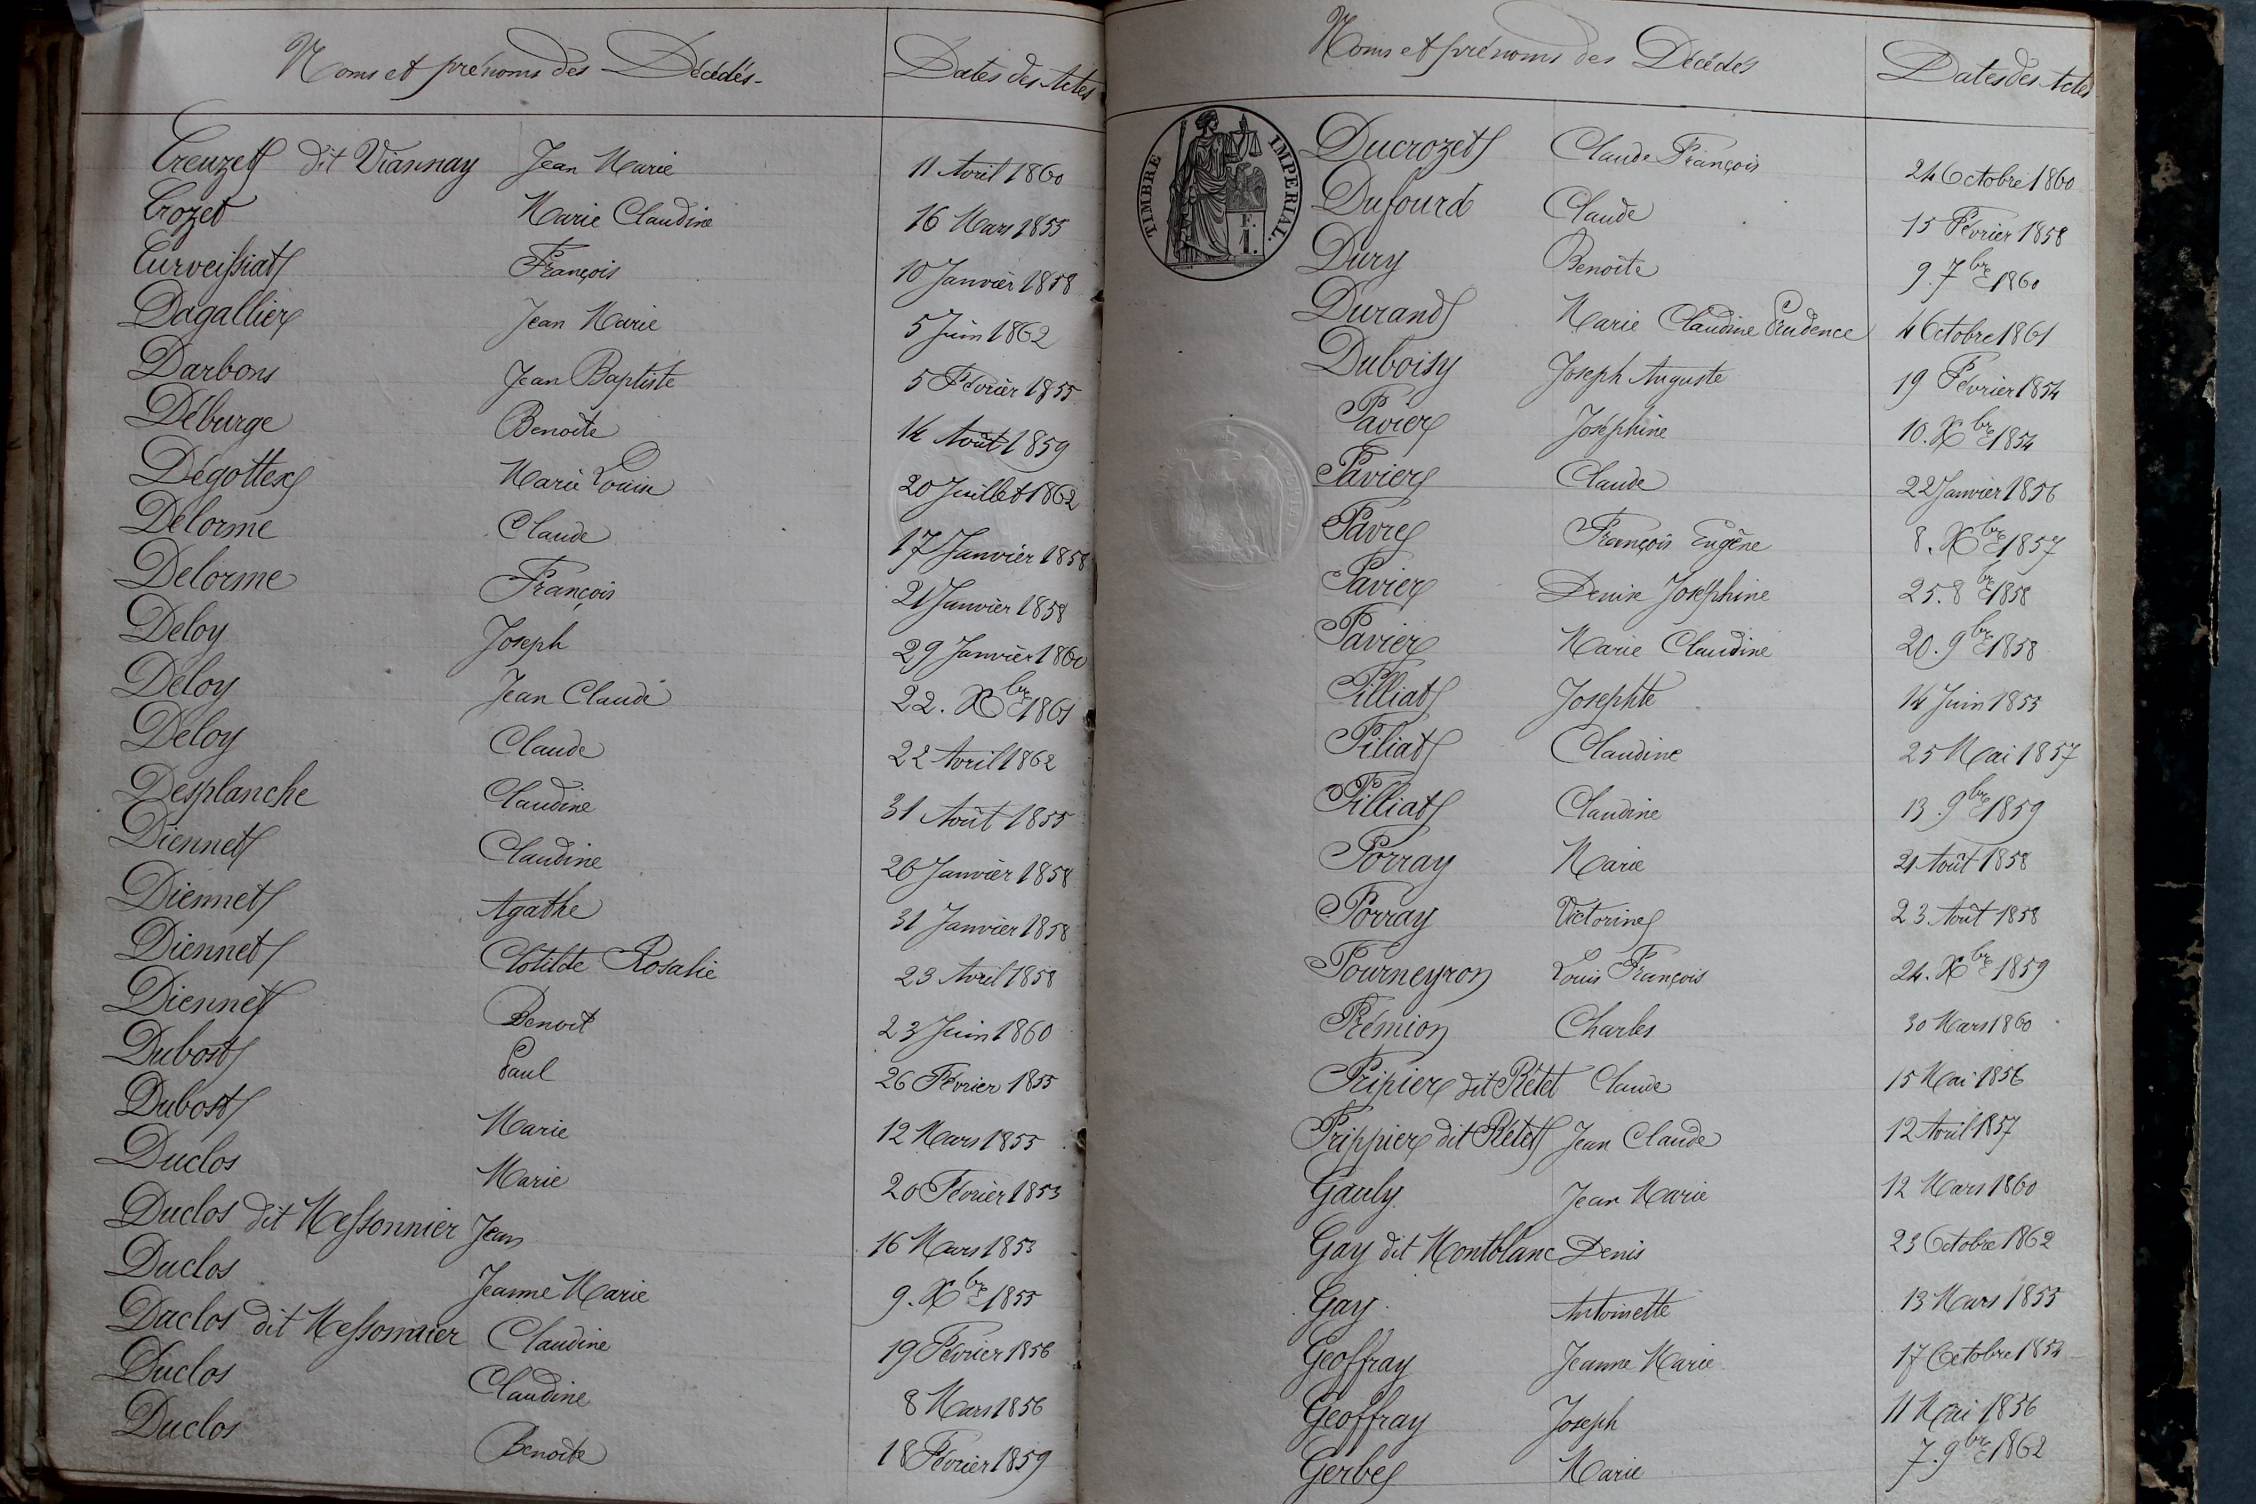 Noms et prénoms des Décédés
Dates des Actes
Creuzet dit Viannay Jean Marie 11 Avril 1860
Crozet Marie Claudine 16 Mars 1855
Curveissiat François 10 Janvier 1858
Dagallier Jean Marie 5 Juin 1862
Darbons Jean Baptiste 5 Février 1855
Déburge Benoîte 14 Août 1859
Dégottex Marie Louise 20 Juillet 1862
Delorme Claude 17 Janvier 1858
Delorme François 21 Janvier 1858
Deloy Joseph 29 Janvier 1860
Deloy Jean Claude 22. Xbre 1861
Deloy Claude 22 Avril 1862
Desplanche Claudine 31 Août 1855
Diennet Claudine 26 Janvier 1858
Diennet Agathe 31 Janvier 1858
Diennet Clotilde Rosalie 23 Avril 1858
Diennet Benoit 23 Juin 1860
Dubost Paul 26 Février 1855
Dubost Marie 12 Mars 1855
Duclos Marie 20 Février 1853
Duclos dit Messonnier Jean 16 Mars 1853
Duclos Jeanne Marie 9. Xbre 1855
Duclos dit Messonnier Claudine 19 Février 1856
Duclos Claudine 8 Mars 1856
Duclos Benoîte 18 Février 1859
Noms et prénoms des Décédés
Dates des Actes
TIMBRE IMPERIAL.
F.
1.
Ducrozet Claude François 24 Octobre 1860
Dufourd Claude 15 Février 1858
Dury Benoîte 9. 7bre 1860
Durand Marie Claudine Prudence 4 Octobre 1861
Duboisy Joseph Auguste 19 Février 1854
Favier Joséphine 10. Xbre 1854
Favier Claude 22 Janvier 1856
Favre François Eugène 8. Xbre 1857
Favier Denise Joséphine 25. 8bre 1858
Favier Marie Claudine 20. 9bre 1858
Filliat Josephte 14 Juin 1855
Filiat Claudine 25 Mai 1857
Filliat Claudine 13. 9bre 1859
Forray Marie 21 Août 1858
Forray Victorine 23 Août 1858
Fourneyron Louis François 24. Xbre 1859
Frémion Charles 30 Mars 1860
Fripier dit Rétet Claude 15 Mai 1856
Frippier dit Rétet Jean Claude 12 Avril 1857
Gauly Jean Marie 12 Mars 1860
Gay dit Montblanc Denis 23 Octobre 1862
Gay Antoinette 13 Mars 1855
Geoffray Jeanne Marie 17 Octobre 1854
Geoffray Joseph 11 Mai 1856
Gerbe Marie 7. 9bre 1862